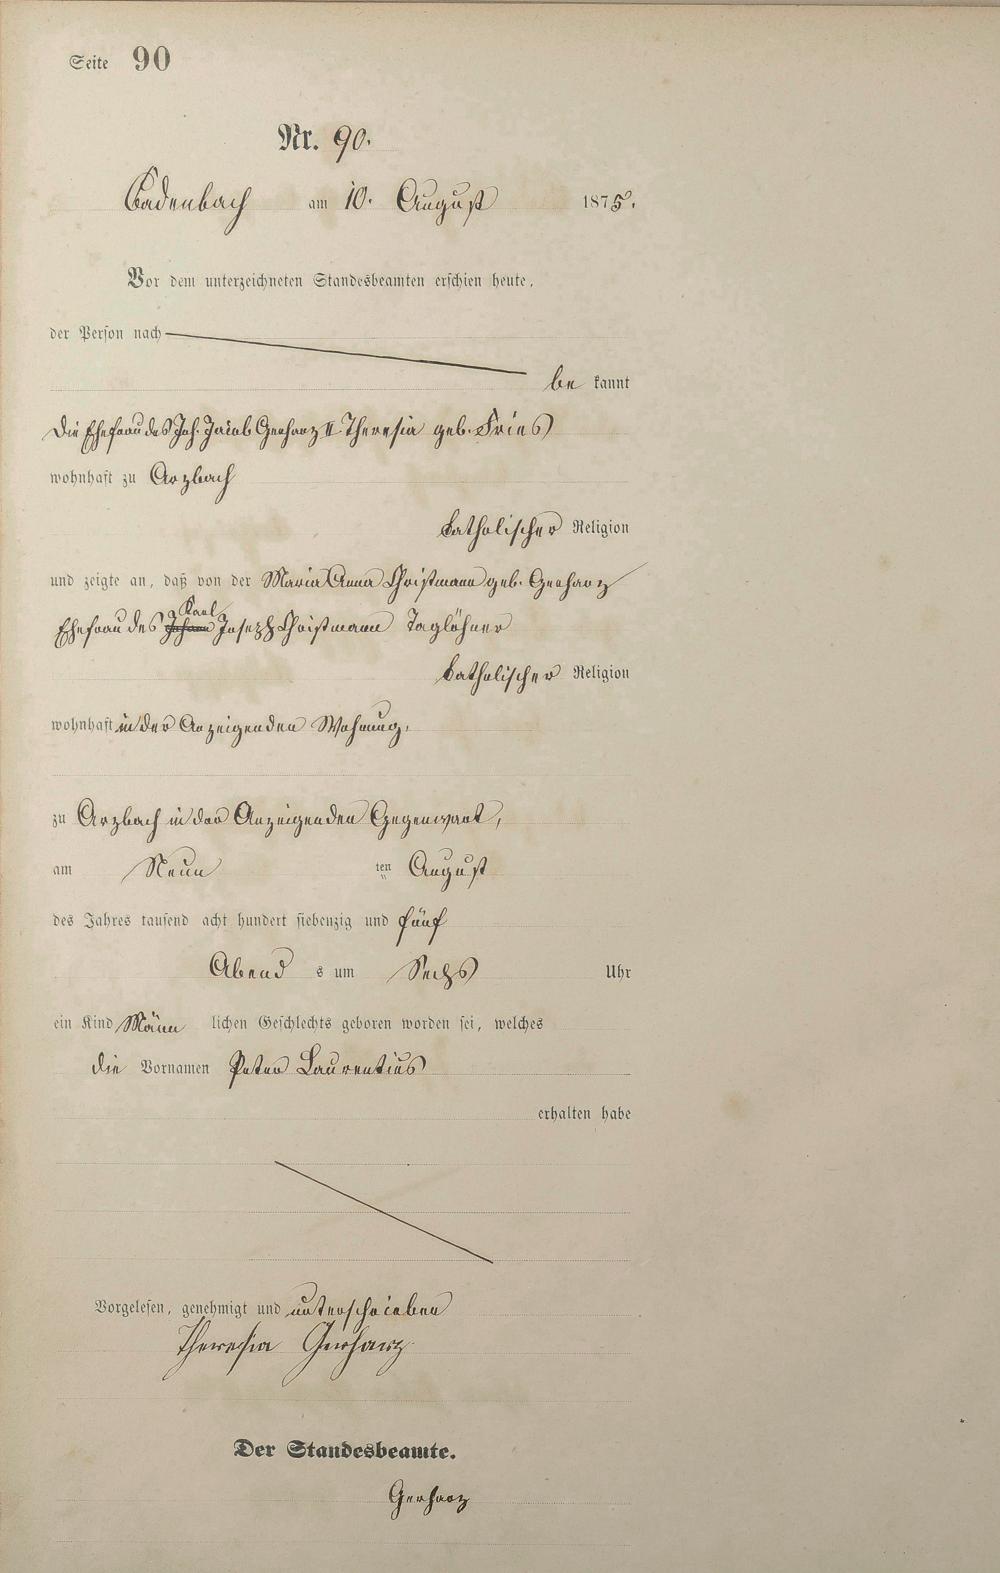 Seite 90
Nr. 90.
Cadenbach am 10. August 1875.
Vor dem unterzeichneten Standesbeamten erschien heute,
der Person nach
be kannt
Die Ehefrau des Joh. Jacob Gerharz II. Theresia geb. Fries
wohnhaft zu Arzbach
katholischer Religion
und zeigte an, daß von der Maria Anna Christmann geb. Gerharz
Karl
Ehefrau des Johann Joseph Christmann Taglöhner
katholischer Religion
wohnhaft in der Anzeigenden Wohnung,
zu Arzbach in der Anzeigenden Gegenwart,
am Neun ten August
des Jahres tausend acht hundert siebenzig und fünf
Abend s um Sechs Uhr
ein Kind Männ lichen Geschlechts geboren worden sei, welches
die Vornamen Peter Laurentius
erhalten habe
Vorgelesen, genehmigt und unterschrieben
Theresia Gerharz
Der Standesbeamte.
Gerharz